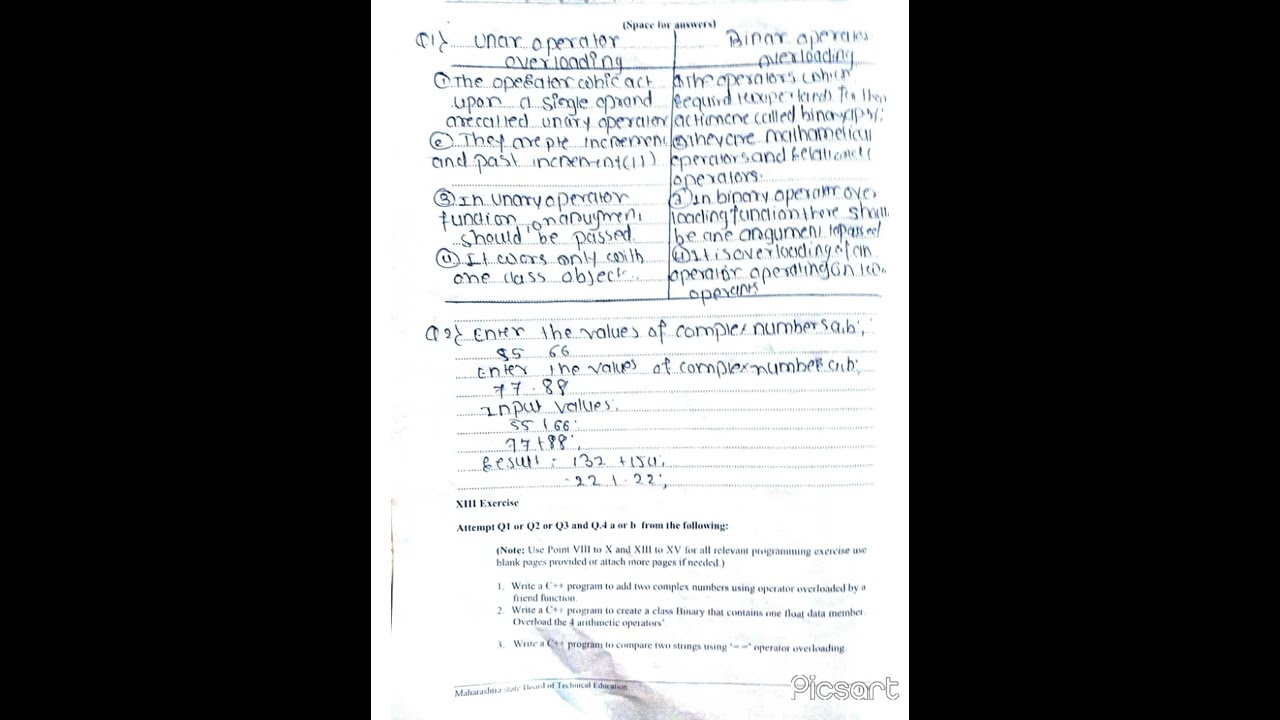 (Space for answers)
Q1} Unar operator Binar operator
overloading overloading
① The operator which act ① The operators which
upon a single oprand required two operands for then
are called unary operator action are called binary
② They are pre increment ② They are mathametical
and past increment (11) operators and relational
operators.
③ In unary operator ③ In binary operator over
function, no anugment loading function there shall
should be passed. be one angument to passed
④ It wors only with ④ It is overloading of an
one class object. operator operating on two
operants
Q2} Enter the values of complex numbers a,b;
55 66
Enter the values of complex number a,b;
77.88
Input values:
55 i 66;
77+88;
Result = 132 + 154;
-22 + -22;
XIII Exercise
Attempt Q1 or Q2 or Q3 and Q.4 a or b from the following:
(Note: Use Point VIII to X and XIII to XV for all relevant programming exercise use
blank pages provided or attach more pages if needed.)
1. Write a C++ program to add two complex numbers using operator overloaded by a
friend function.
2. Write a C++ program to create a class Binary that contains one float data member.
Overload the 4 arithmetic operators'
3. Write a C++ program to compare two strings using '= =' operator overloading
Maharashtra state Board of Technical Education
Picsart